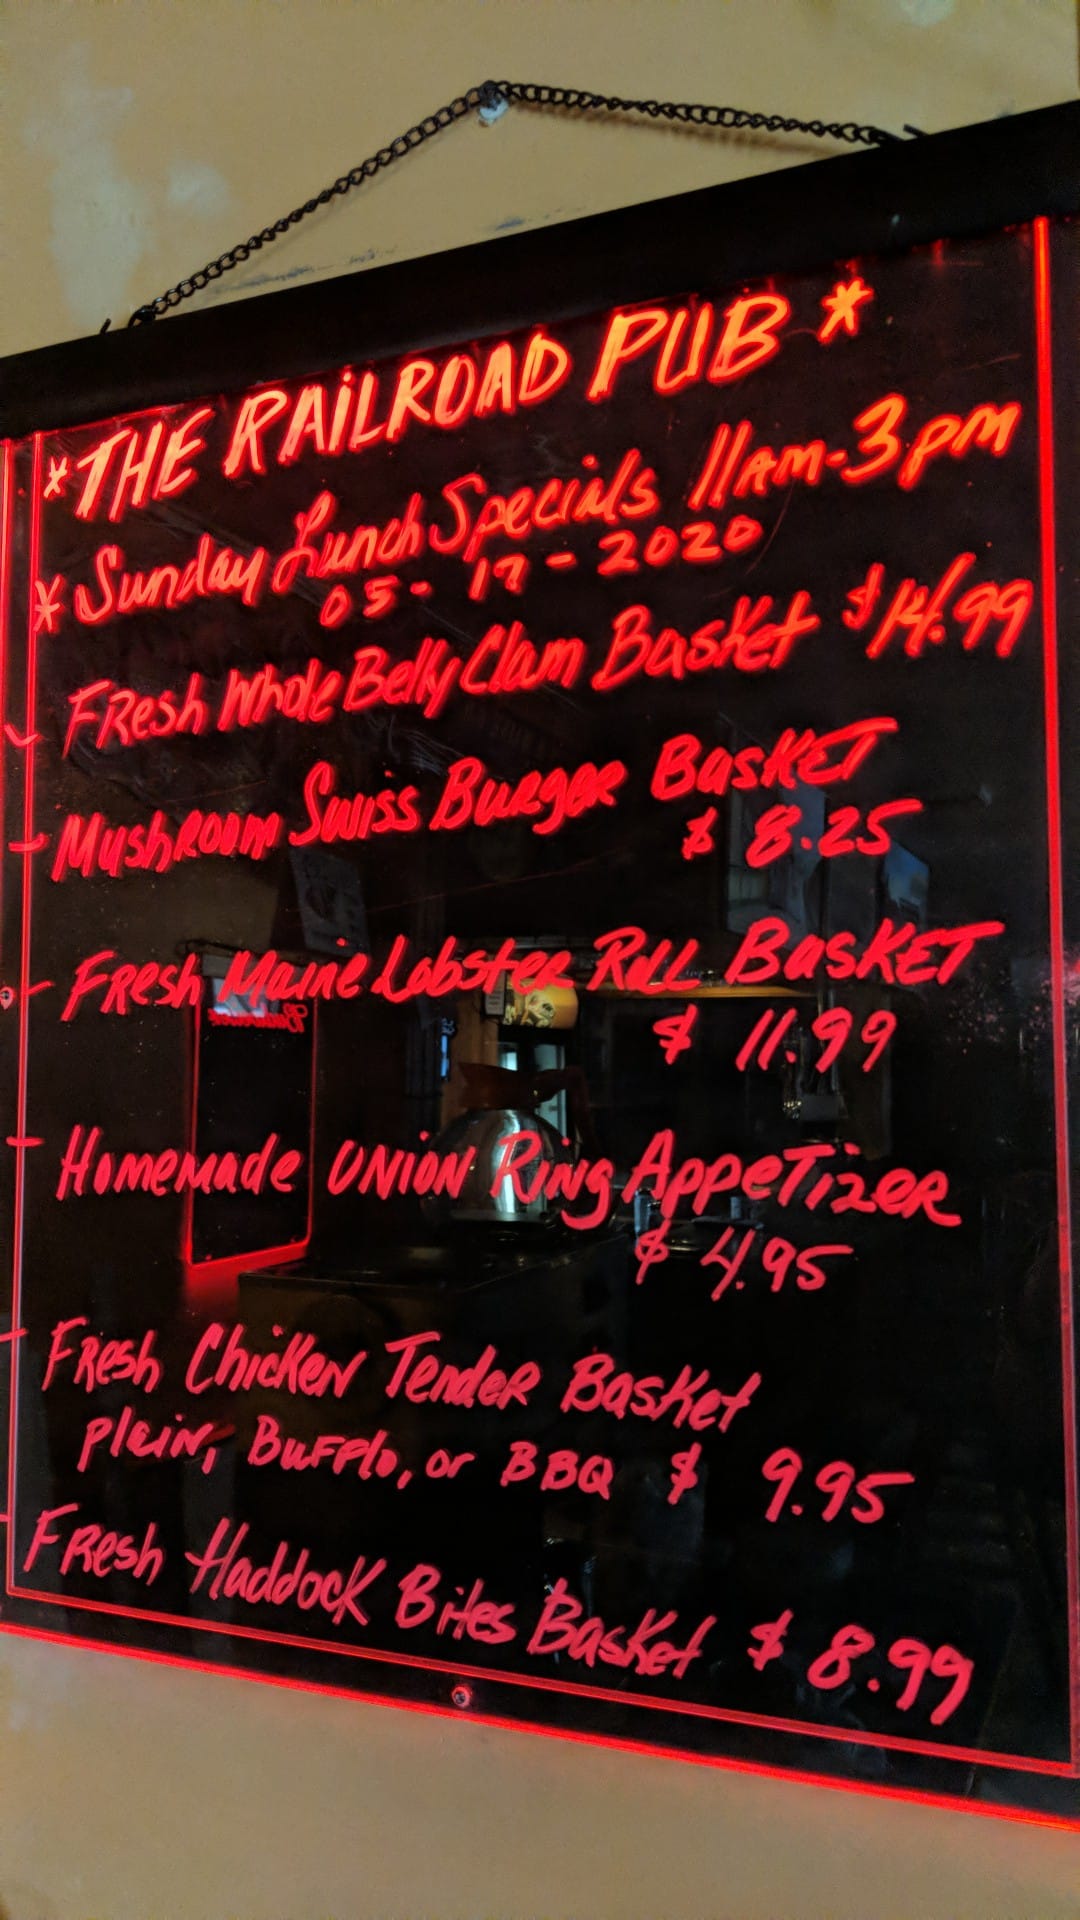 *THE RAILROAD PUB*
* Sunday Lunch Specials 11AM-3pm
05-17-2020
- FResh Whole Belly Clam BasKet $14.99
- MushRoom Swiss BuRgeR BasKET
$ 8.25
- FResh Maine LobsteR Roll BasKET
$ 11.99
- Homemade UNION Ring AppeTizeR
$ 4.95
- FResh ChicKen TendeR BasKet
plain, BuFFlo, or BBQ $ 9.95
- FResh HaddocK Bites BasKet $ 8.99